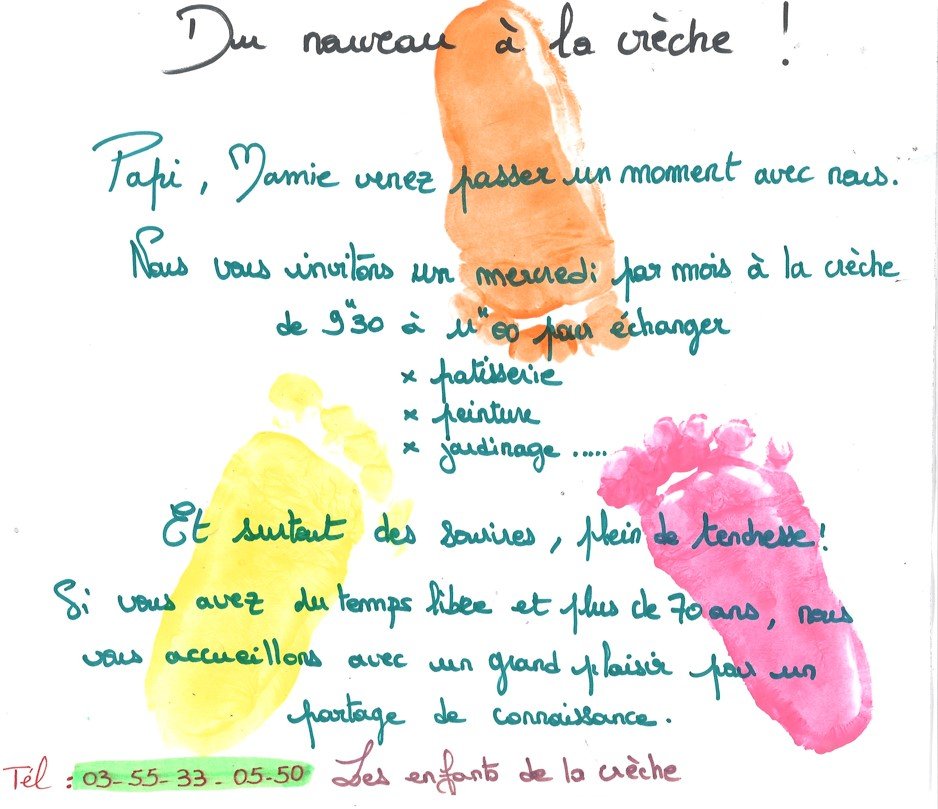 Du nouveau à la crèche !
Papi, Mamie venez passer un moment avec nous.
Nous vous invitons un mercredi par mois à la crèche
de 9H30 à 11H00 pour échanger
x patisserie
x peinture
x jardinage .....
Et surtout des sourires, plein de tendresse !
Si vous avez du temps libre et plus de 70 ans, nous
vous accueillons avec un grand plaisir pour un
partage de connaissance.
Tél : 03-55-33-05-50 Les enfants de la crèche